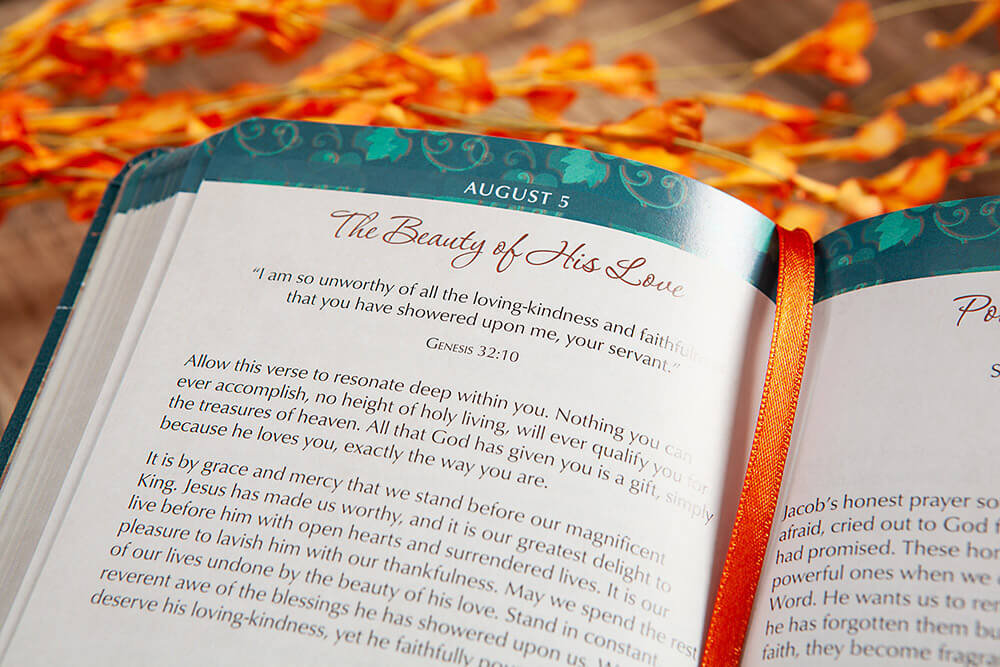 AUGUST 5
The Beauty of His Love
“I am so unworthy of all the loving-kindness and
that you have showered upon me, your servant.”
Genesis 32:10
Allow this verse to resonate deep within you. Nothing you can
ever accomplish, no height of holy living, will ever qualify you for
the treasures of heaven. All that God has given you is a gift, simply
because he loves you, exactly the way you are.
It is by grace and mercy that we stand before our magnificent
King. Jesus has made us worthy, and it is our greatest delight to
live before him with open hearts and surrendered lives. It is our
pleasure to lavish him with our thankfulness. May we spend the rest
of our lives undone by the beauty of his love. Stand in constant
reverent awe of the blessings he has showered upon us.
deserve his loving-kindness, yet he faithfully
Jacob’s honest prayer
afraid, cried out to God
had promised. These
powerful ones when we
Word. He wants us to
he has forgotten them
faith, they become